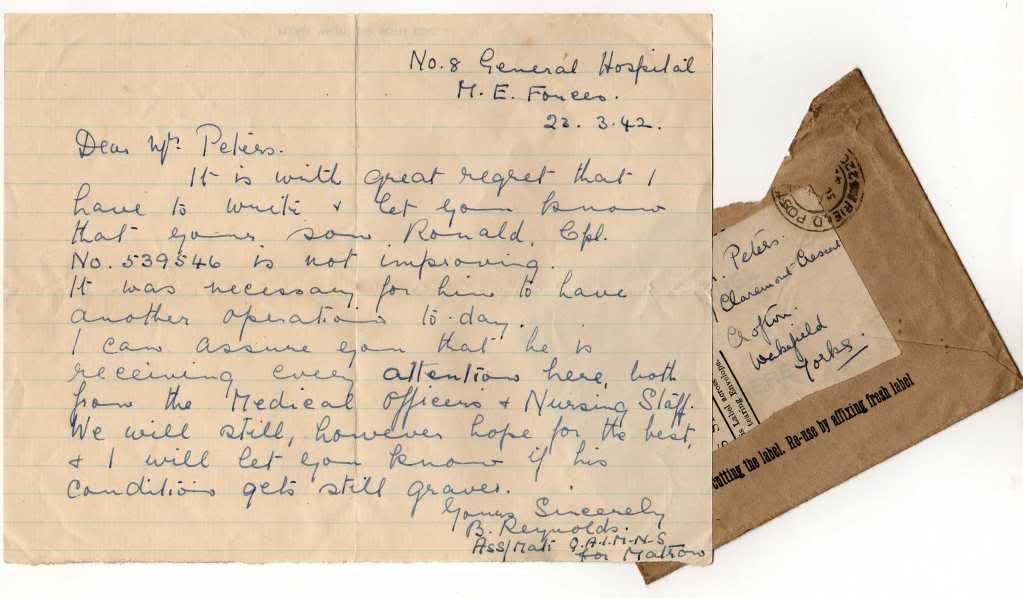 No. 8 General Hospital
M. E. Forces.
23. 3. 42.
Dear Mr. Peters.
It is with great regret that I
have to write & let you know
that your son Ronald, Cpl.
No. 539546 is not improving.
It was necessary for him to have
another operation to-day.
I can assure you that he is
receiving every attention here, both
from the Medical Officers & Nursing Staff.
We will still, however hope for the best,
& I will let you know if his
condition gets still graver.
Yours Sincerely
B. Reynolds.
Ass/Mat Q.A.I.M.N.S
for Matron
FIELD POST
Peters.
Claremont Crescent
Crofton
Wakefield
Yorks.
Label across
tearing Envelope.
cutting the label. Re-use by affixing fresh label